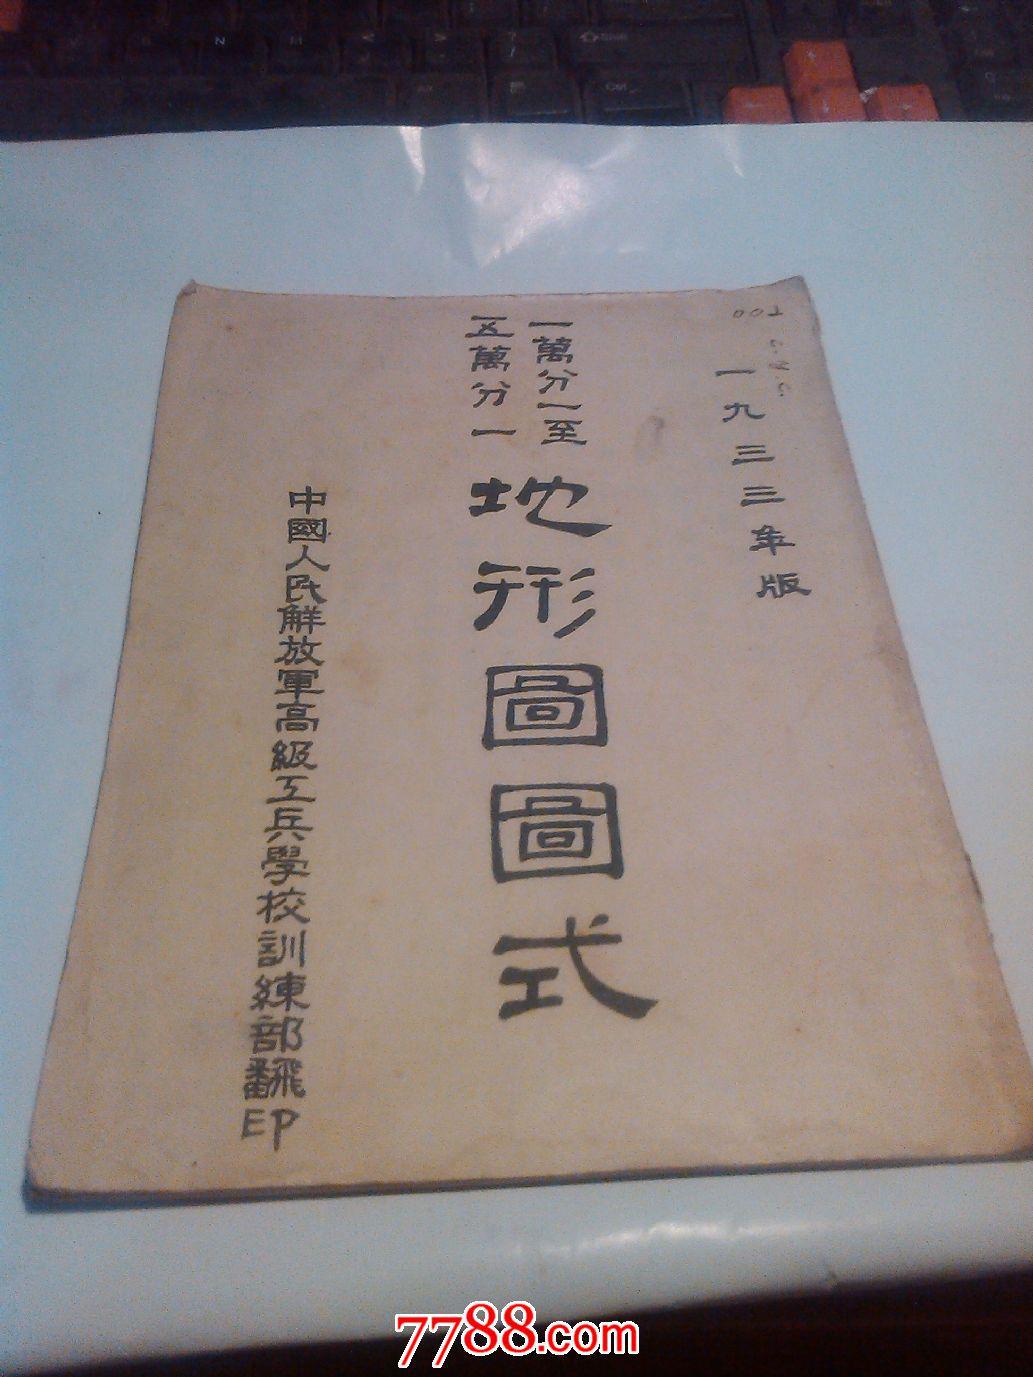 001
C.Y.C.
一九三三年版
一萬分一至
五萬分一
地形圖圖式
中國人民解放軍高級工兵學校訓練部翻印
7788.com